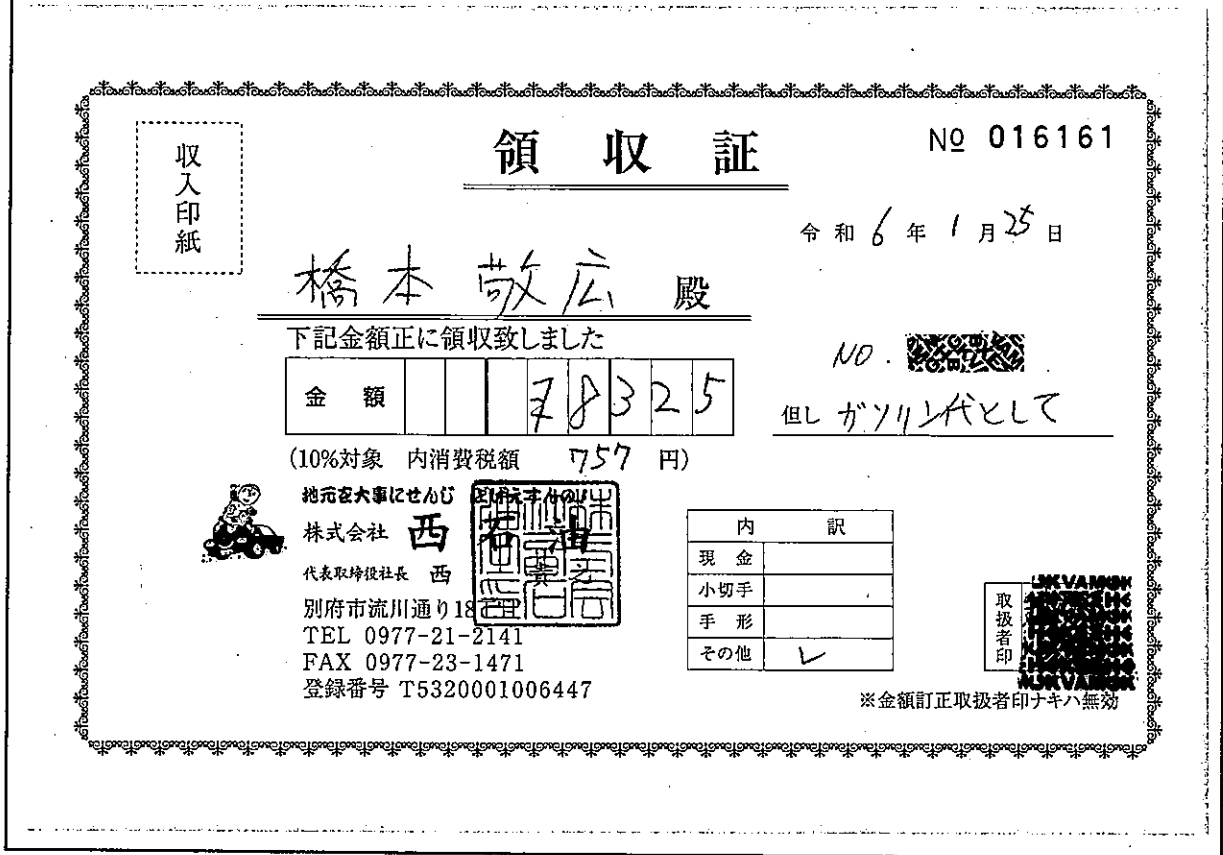 収入印紙
領収証
No 016161
令和6年1月25日
橋本 敬広 殿
下記金額正に領収致しました
NO.
金額 ¥8325
但し ガソリン代として
(10%対象 内消費税額 757 円)
地元を大事にせんじ どげえすんのい
株式会社 西石油
代表取締役社長 西
別府市流川通り18丁目
TEL 0977-21-2141
FAX 0977-23-1471
登録番号 T5320001006447
内訳
現金
小切手
手形
その他 レ
取扱者印
※金額訂正取扱者印ナキハ無効